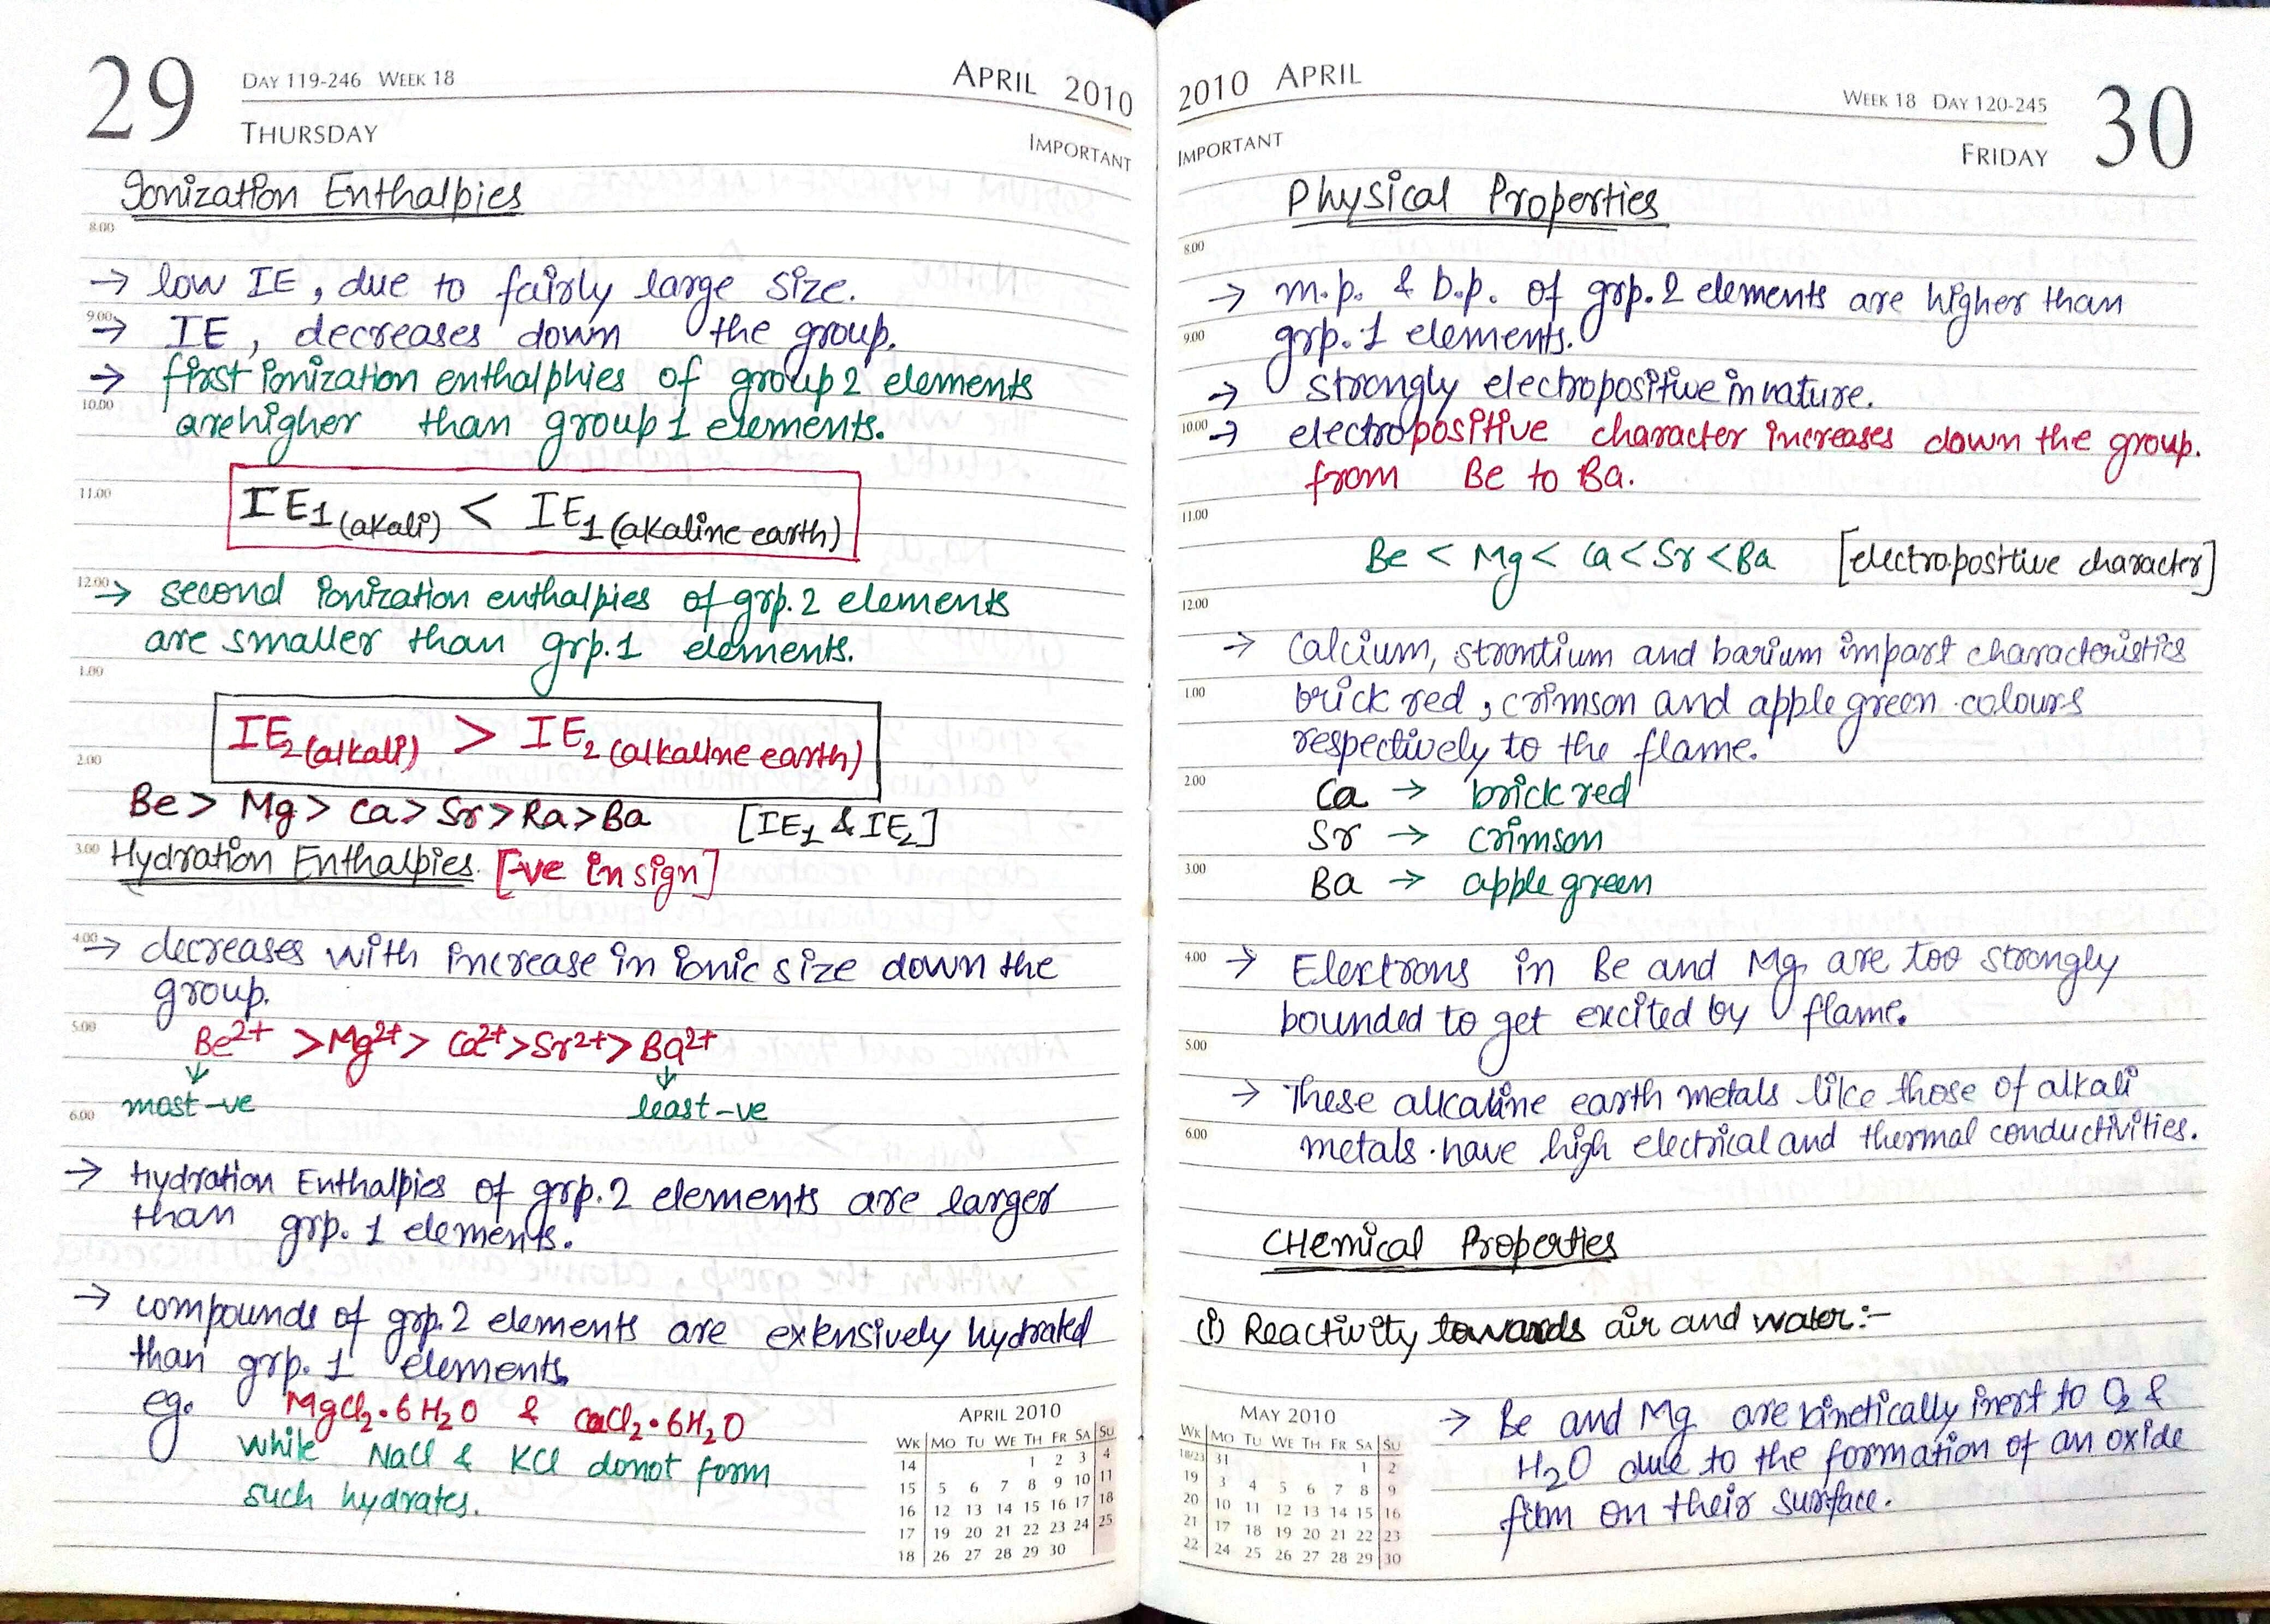 29
DAY 119-246 WEEK 18
APRIL 2010
THURSDAY
IMPORTANT
Ionization Enthalpies
8.00
→ low IE, due to fairly large size.
9.00
→ IE, decreases down the group.
→ first ionization enthalphies of group 2 elements
10.00
are higher than group 1 elements.
11.00
IE1 (akali) < IE1 (akaline earth)
12.00
→ second ionization enthalpies of grp. 2 elements
are smaller than grp. 1 elements.
1.00
IE2 (alkali) > IE2 (alkaline earth)
2.00
Be > Mg > Ca > Sr > Ra > Ba [IE1 & IE2]
3.00
Hydration Enthalpies. [-ve in sign]
4.00
→ decreases with increase in ionic size down the
group.
5.00
Be2+ > Mg2+ > Ca2+ > Sr2+ > Ba2+
↓ ↓
most -ve least -ve
6.00
→ Hydration Enthalpies of grp. 2 elements are larger
than grp. 1 elements.
→ compounds of grp. 2 elements are extensively hydrated
than grp. 1 elements.
eg. MgCl2.6H2O & CaCl2.6H2O
while NaCl & KCl donot form
such hydrates.
APRIL 2010
WK MO TU WE TH FR SA SU
14 1 2 3 4
15 5 6 7 8 9 10 11
16 12 13 14 15 16 17 18
17 19 20 21 22 23 24 25
18 26 27 28 29 30
2010 APRIL
WEEK 18 DAY 120-245
30
IMPORTANT
FRIDAY
Physical Properties
8.00
→ m.p. & b.p. of grp. 2 elements are higher than
9.00
grp. 1 elements.
→ strongly electropositive in nature.
10.00
→ electropositive character increases down the group.
from Be to Ba.
11.00
Be < Mg < Ca < Sr < Ba [electropositive character]
12.00
→ Calcium, strontium and barium impart characteristics
1.00
brick red, crimson and apple green colours
respectively to the flame.
2.00
Ca → brick red
Sr → crimson
3.00
Ba → apple green
4.00
→ Electrons in Be and Mg are too strongly
bounded to get excited by flame.
5.00
→ These alkaline earth metals like those of alkali
6.00
metals have high electrical and thermal conductivities.
CHemical Properties
(i) Reactivity towards air and water:-
→ Be and Mg are kinetically inert to O2 &
H2O due to the formation of an oxide
film on their surface.
MAY 2010
WK MO TU WE TH FR SA SU
18/23 31 1 2
19 3 4 5 6 7 8 9
20 10 11 12 13 14 15 16
21 17 18 19 20 21 22 23
22 24 25 26 27 28 29 30